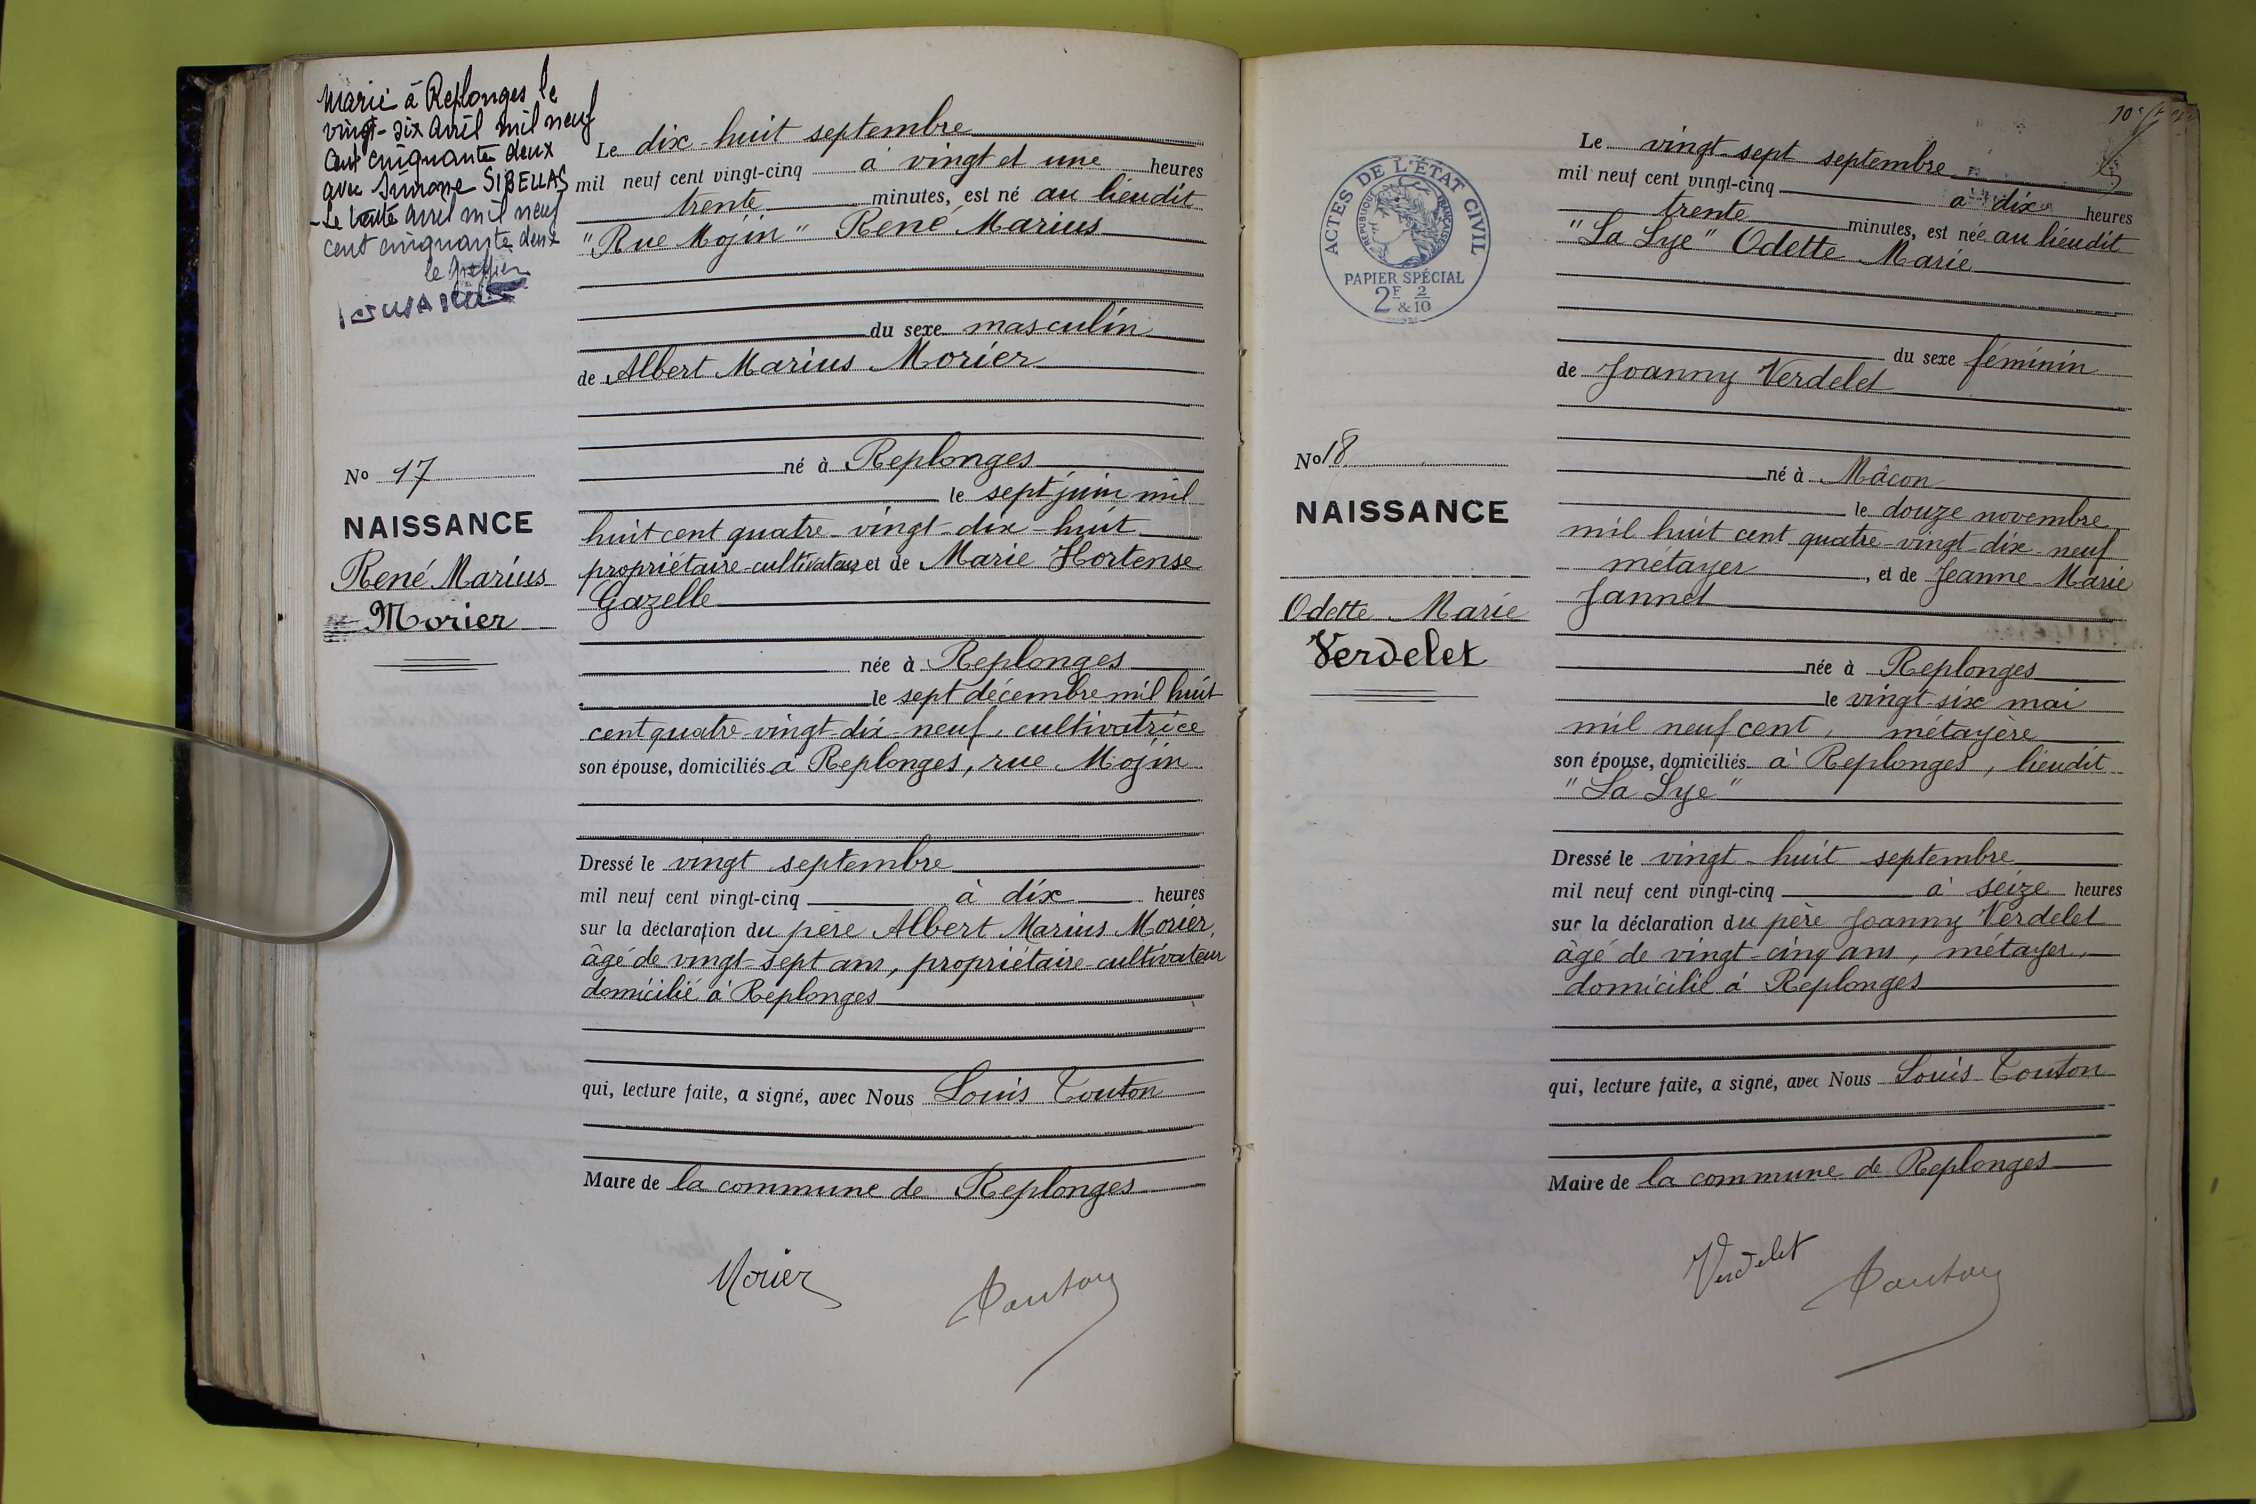 Marié à Replonges le
vingt-six avril mil neuf
cent cinquante deux
avec Simone SIBELLAS
Le trente avril mil neuf
cent cinquante deux
le greffier
No 17
NAISSANCE
René Marius
Morier
Le dix-huit septembre
mil neuf cent vingt-cinq à vingt et une heures
trente minutes, est né au lieudit
"Rue Mojin" René Marius
du sexe masculin
de Albert Marius Morier
né à Replonges
le sept juin mil
huit cent quatre-vingt-dix-huit
propriétaire-cultivateur, et de Marie Hortense
Gazelle
née à Replonges
le sept décembre mil huit
cent quatre-vingt-dix-neuf, cultivatrice
son épouse, domiciliés à Replonges, rue Mojin
Dressé le vingt septembre
mil neuf cent vingt-cinq à dix heures
sur la déclaration du père Albert Marius Morier,
âgé de vingt-sept ans, propriétaire-cultivateur
domicilié à Replonges
qui, lecture faite, a signé, avec Nous Louis Touton
Maire de la commune de Replonges
Morier Touton
ACTES DE L'ÉTAT CIVIL
REPUBLIQUE FRANÇAISE
PAPIER SPÉCIAL
2F & 2/10
No 18
NAISSANCE
Odette Marie
Verdelet
10e
Le vingt-sept septembre
mil neuf cent vingt-cinq à dix heures
trente minutes, est née au lieudit
"La Lye" Odette Marie
du sexe féminin
de Joanny Verdelet
né à Mâcon
le douze novembre
mil huit cent quatre-vingt-dix-neuf
métayer, et de Jeanne-Marie
Jannet
née à Replonges
le vingt-six mai
mil neuf cent, métayère
son épouse, domiciliés à Replonges, lieudit
"La Lye"
Dressé le vingt-huit septembre
mil neuf cent vingt-cinq à seize heures
sur la déclaration du père Joanny Verdelet
âgé de vingt-cinq ans, métayer,
domicilié à Replonges
qui, lecture faite, a signé, avec Nous Louis Touton
Maire de la commune de Replonges
Verdelet Touton